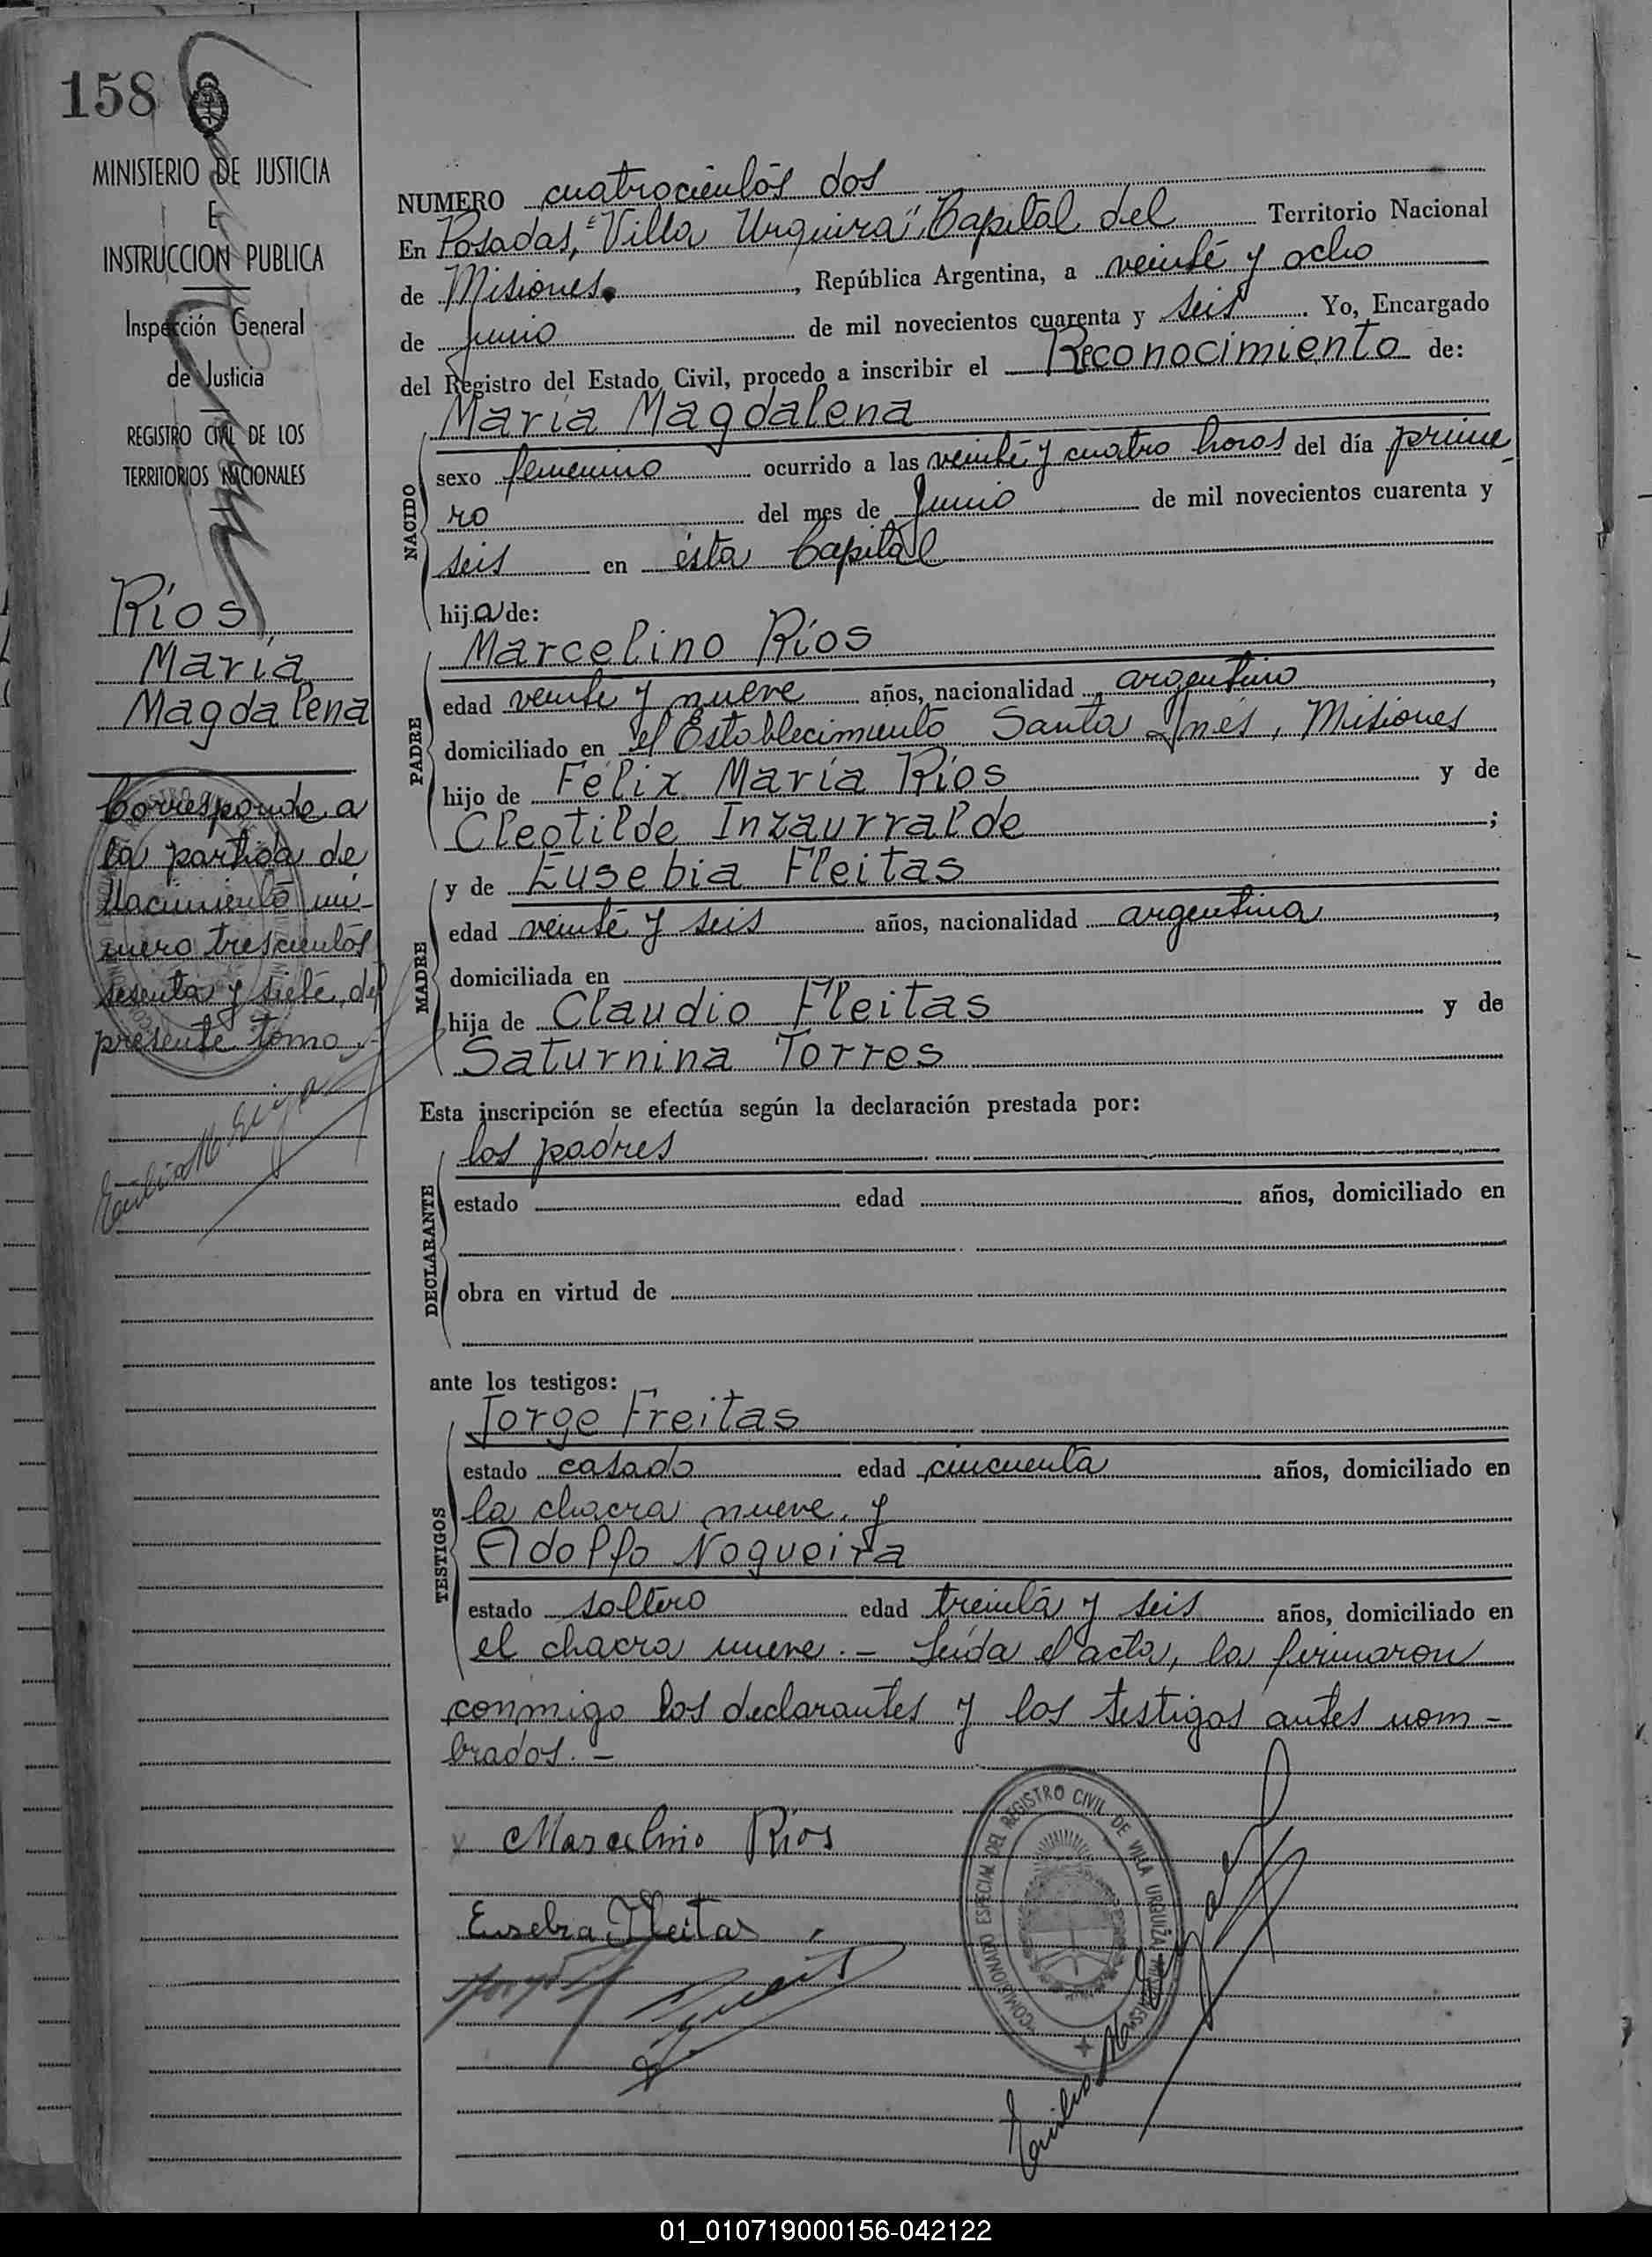 158
MINISTERIO DE JUSTICIA
E
INSTRUCCION PUBLICA
Inspección General
de Justicia
REGISTRO CIVIL DE LOS
TERRITORIOS NACIONALES
Ríos,
María
Magdalena
Corresponde a
la partida de
Nacimiento nú-
mero trescientos
sesenta y siete, del
presente tomo.-
NUMERO cuatrocientos dos
En Posadas, "Villa Urquiza", Capital del Territorio Nacional
de Misiones, República Argentina, a veinte y ocho
de junio de mil novecientos cuarenta y seis. Yo, Encargado
del Registro del Estado Civil, procedo a inscribir el Reconocimiento de:
NACIDO
María Magdalena
sexo femenino ocurrido a las veinte y cuatro horas del día prime-
ro del mes de Junio de mil novecientos cuarenta y
seis en ésta Capital
hija de:
PADRE
Marcelino Ríos
edad veinte y nueve años, nacionalidad argentino,
domiciliado en el Establecimiento Santa Inés, Misiones
hijo de Félix María Ríos y de
Cleotilde Inzaurralde;
MADRE
y de Eusebia Fleitas
edad veinte y seis años, nacionalidad argentina,
domiciliada en
hija de Claudio Fleitas y de
Saturnina Torres
Esta inscripción se efectúa según la declaración prestada por:
DECLARANTE
los padres
estado edad años, domiciliado en
obra en virtud de
ante los testigos:
TESTIGOS
Jorge Freitas
estado casado edad cincuenta años, domiciliado en
la chacra nueve, y
Adolfo Nogueira
estado soltero edad treinta y seis años, domiciliado en
el chacra nueve.- Leída el acta, la firmaron
conmigo los declarantes y los testigos antes nom-
brados.-
Marcelino Ríos
Eusebia Fleitas
COMISIONADO ESPECIAL DEL REGISTRO CIVIL DE VILLA URQUIZA MISIONES
01_010719000156-042122